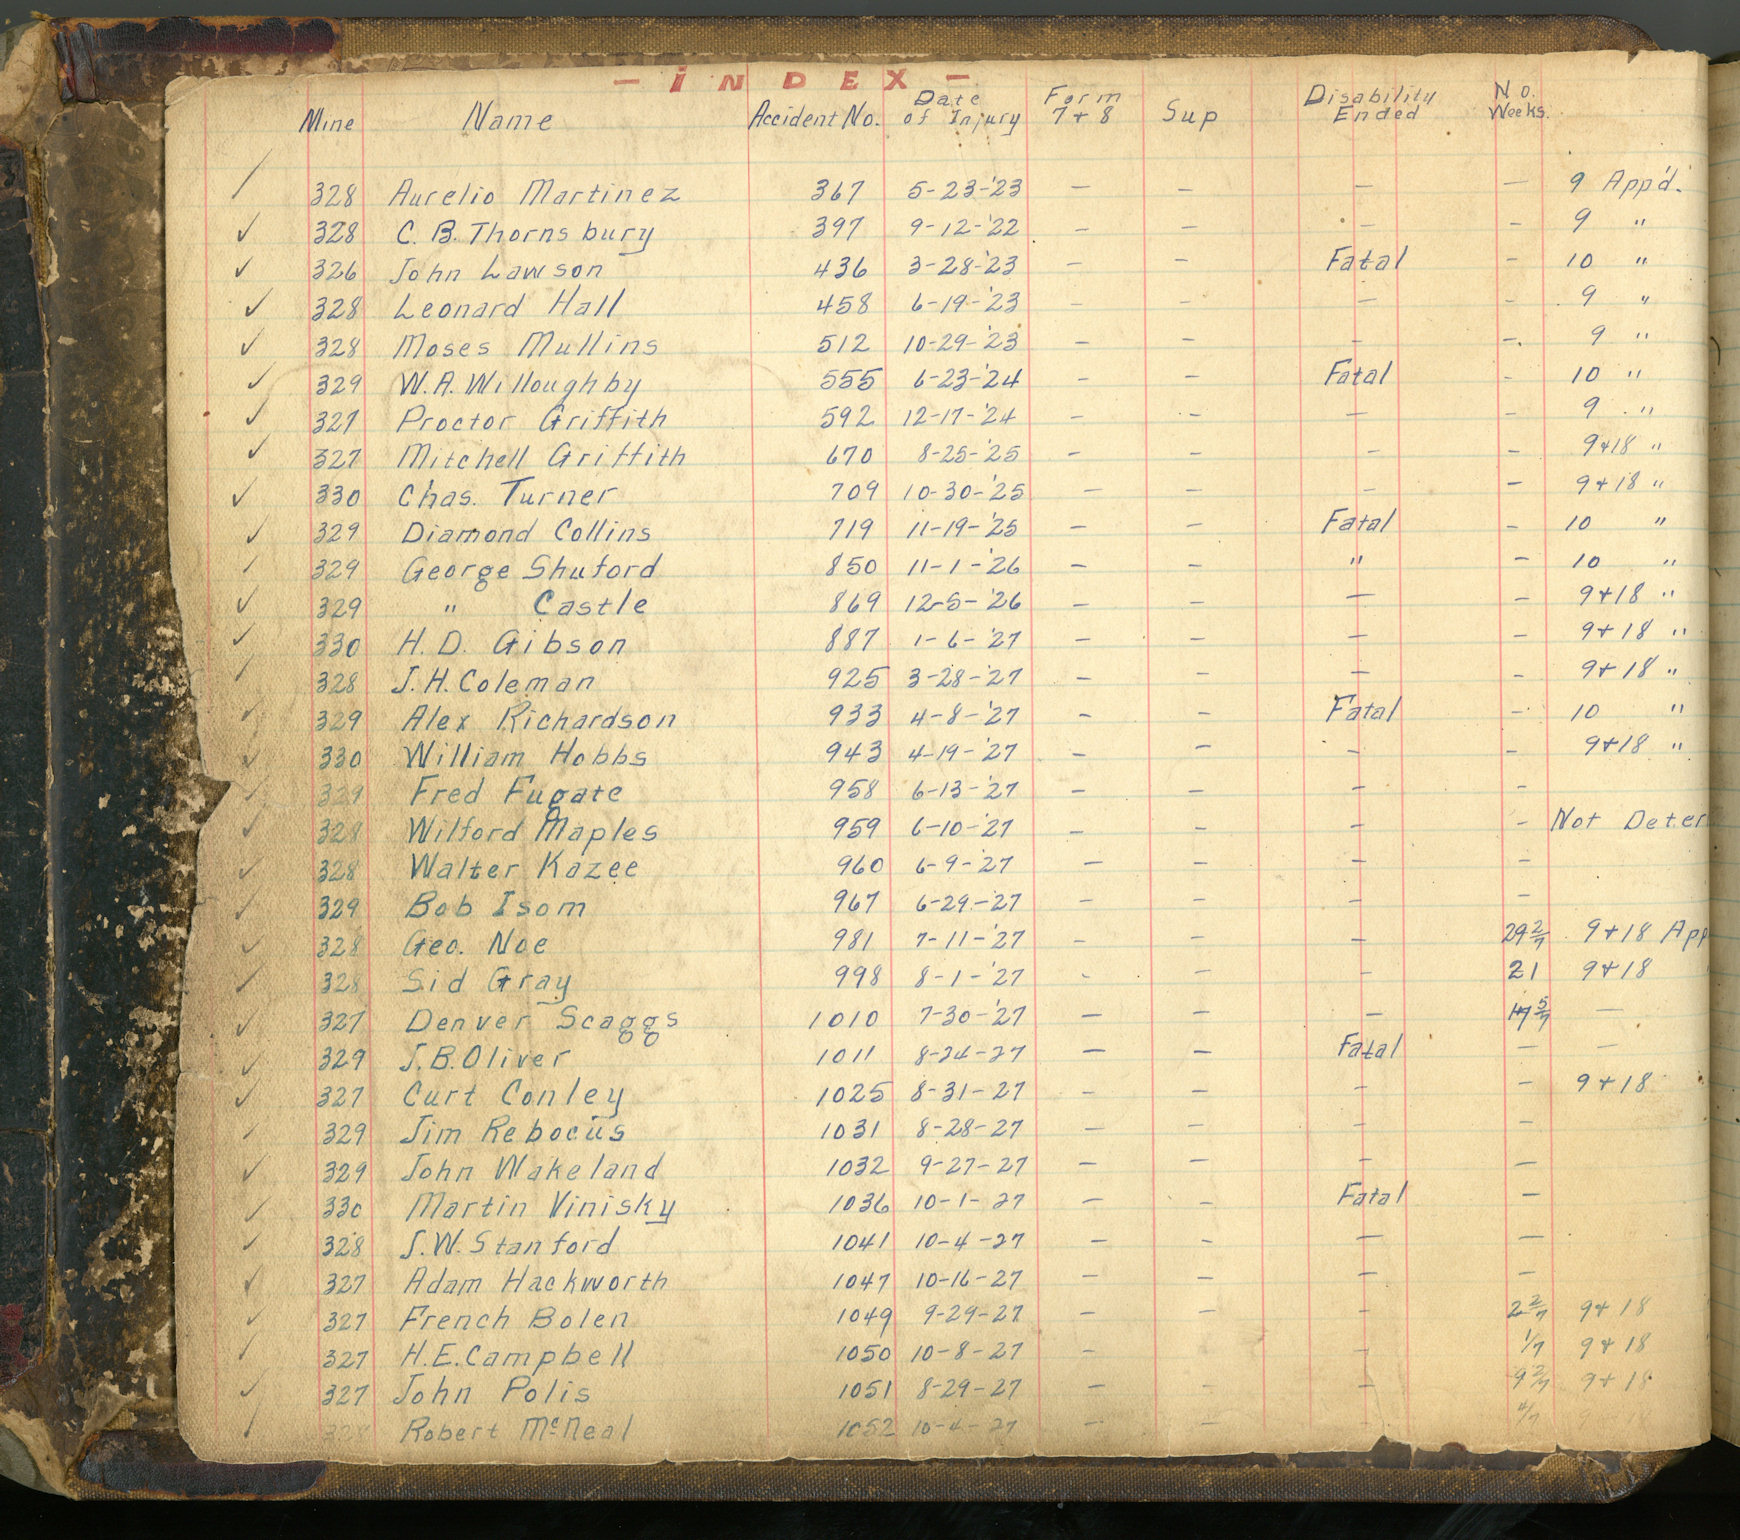 - INDEX -
Mine Name Accident No. Date of Injury Form 7+8 Sup Disability Ended No. Weeks.
✓ 328 Aurelio Martinez 367 5-23-'23 — — — — 9 App'd.
✓ 328 C. B. Thornsbury 397 9-12-'22 — — — — 9 "
✓ 326 John Lawson 436 3-28-'23 — — Fatal — 10 "
✓ 328 Leonard Hall 458 6-19-'23 — — — — 9 "
✓ 328 Moses Mullins 512 10-29-'23 — — — — 9 "
✓ 329 W. A. Willoughby 555 6-23-'24 — — Fatal — 10 "
✓ 327 Proctor Griffith 592 12-17-'24 — — — — 9 "
✓ 327 Mitchell Griffith 670 8-25-'25 — — — — 9+18 "
✓ 330 Chas. Turner 709 10-30-'25 — — — — 9+18 "
✓ 329 Diamond Collins 719 11-19-'25 — — Fatal — 10 "
✓ 329 George Shuford 850 11-1-'26 — — " — 10 "
✓ 329 " Castle 869 12-5-'26 — — — — 9+18 "
✓ 330 H. D. Gibson 887 1-6-'27 — — — — 9+18 "
✓ 328 J. H. Coleman 925 3-28-'27 — — — — 9+18 "
✓ 329 Alex Richardson 933 4-8-'27 — — Fatal — 10 "
✓ 330 William Hobbs 943 4-19-'27 — — — — 9+18 "
✓ 329 Fred Fugate 958 6-13-'27 — — — —
✓ 328 Wilford Maples 959 6-10-'27 — — — — Not Deter
✓ 328 Walter Kazee 960 6-9-'27 — — — —
✓ 329 Bob Isom 967 6-29-'27 — — — —
✓ 328 Geo. Noe 981 7-11-'27 — — — 29 2/7 9+18 App
✓ 328 Sid Gray 998 8-1-'27 — — — 21 9+18
✓ 327 Denver Scaggs 1010 7-30-'27 — — — 17 5/7 —
✓ 329 J. B. Oliver 1011 8-24-27 — — Fatal — —
✓ 327 Curt Conley 1025 8-31-27 — — — — 9+18
✓ 329 Jim Rebocus 1031 8-28-27 — — — —
✓ 329 John Wakeland 1032 9-27-27 — — — —
✓ 330 Martin Vinisky 1036 10-1-27 — — Fatal —
✓ 328 J. W. Stanford 1041 10-4-27 — — — —
✓ 327 Adam Hackworth 1047 10-16-27 — — — —
✓ 327 French Bolen 1049 9-29-27 — — — 2 2/7 9+18
✓ 327 H. E. Campbell 1050 10-8-27 — — — 1/7 9+18
✓ 327 John Polis 1051 8-29-27 — — — 9 2/7 9+18
✓ 328 Robert McNeal 1052 10-4-27 — — — 4/7